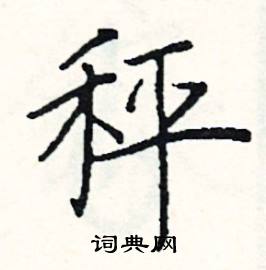 秤
词典网